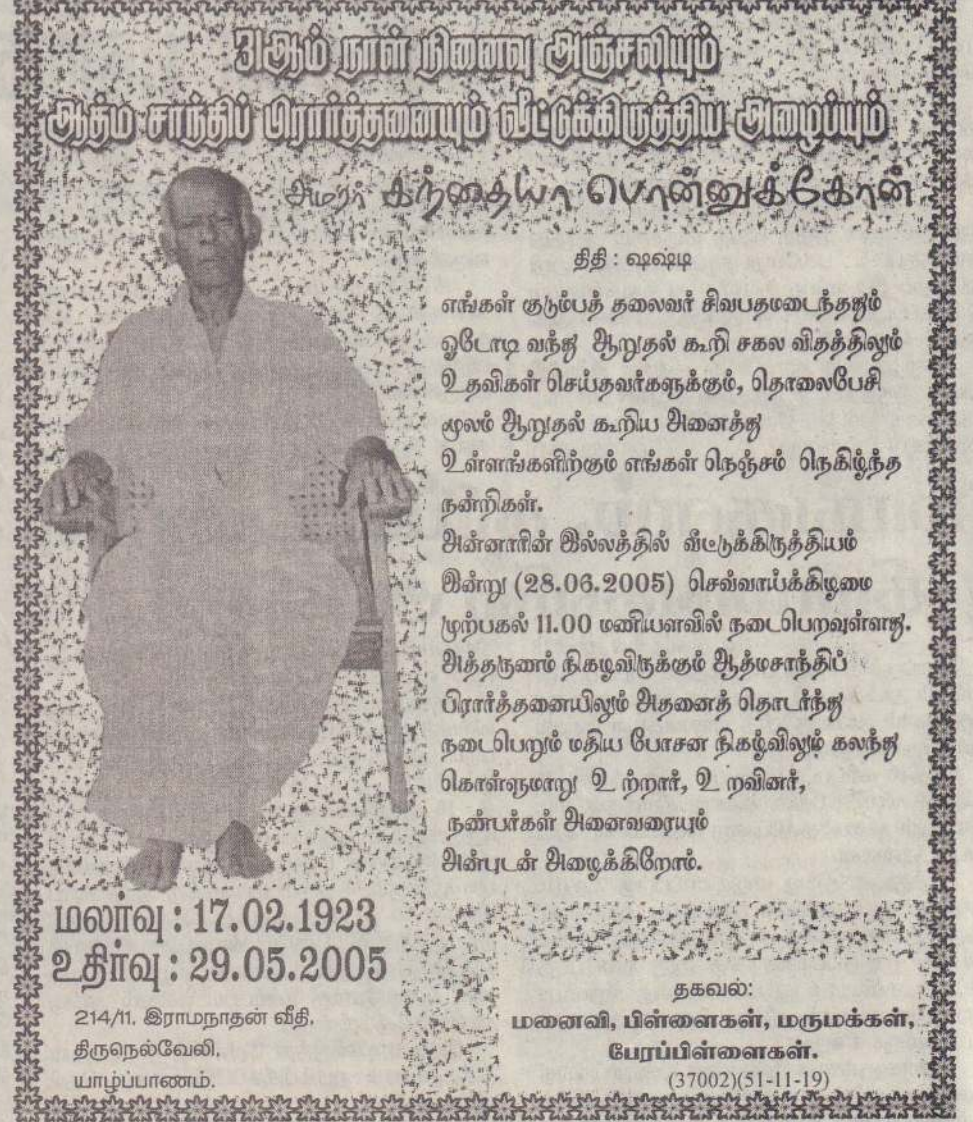 31ஆம் நாள் நினைவு அஞ்சலியும்
ஆத்ம சாந்திப் பிரார்த்தனையும் வீட்டுக்கிருத்திய அழைப்பும்
அமரர் கந்தையா பொன்னுக்கோன்
திதி : ஷஷ்டி
எங்கள் குடும்பத் தலைவர் சிவபதமடைந்ததும்
ஓடோடி வந்து ஆறுதல் கூறி சகல விதத்திலும்
உதவிகள் செய்தவர்களுக்கும், தொலைபேசி
மூலம் ஆறுதல் கூறிய அனைத்து
உள்ளங்களிற்கும் எங்கள் நெஞ்சம் நெகிழ்ந்த
நன்றிகள்.
அன்னாரின் இல்லத்தில் வீட்டுக்கிருத்தியம்
இன்று (28.06.2005) செவ்வாய்க்கிழமை
முற்பகல் 11.00 மணியளவில் நடைபெறவுள்ளது.
அத்தருணம் நிகழவிருக்கும் ஆத்மசாந்திப்
பிரார்த்தனையிலும் அதனைத் தொடர்ந்து
நடைபெறும் மதிய போசன நிகழ்விலும் கலந்து
கொள்ளுமாறு உற்றார், உறவினர்,
நண்பர்கள் அனைவரையும்
அன்புடன் அழைக்கிறோம்.
மலர்வு : 17.02.1923
உதிர்வு : 29.05.2005
214/11, இராமநாதன் வீதி,
திருநெல்வேலி,
யாழ்ப்பாணம்.
தகவல்:
மனைவி, பிள்ளைகள், மருமக்கள்,
பேரப்பிள்ளைகள்.
(37002)(51-11-19)